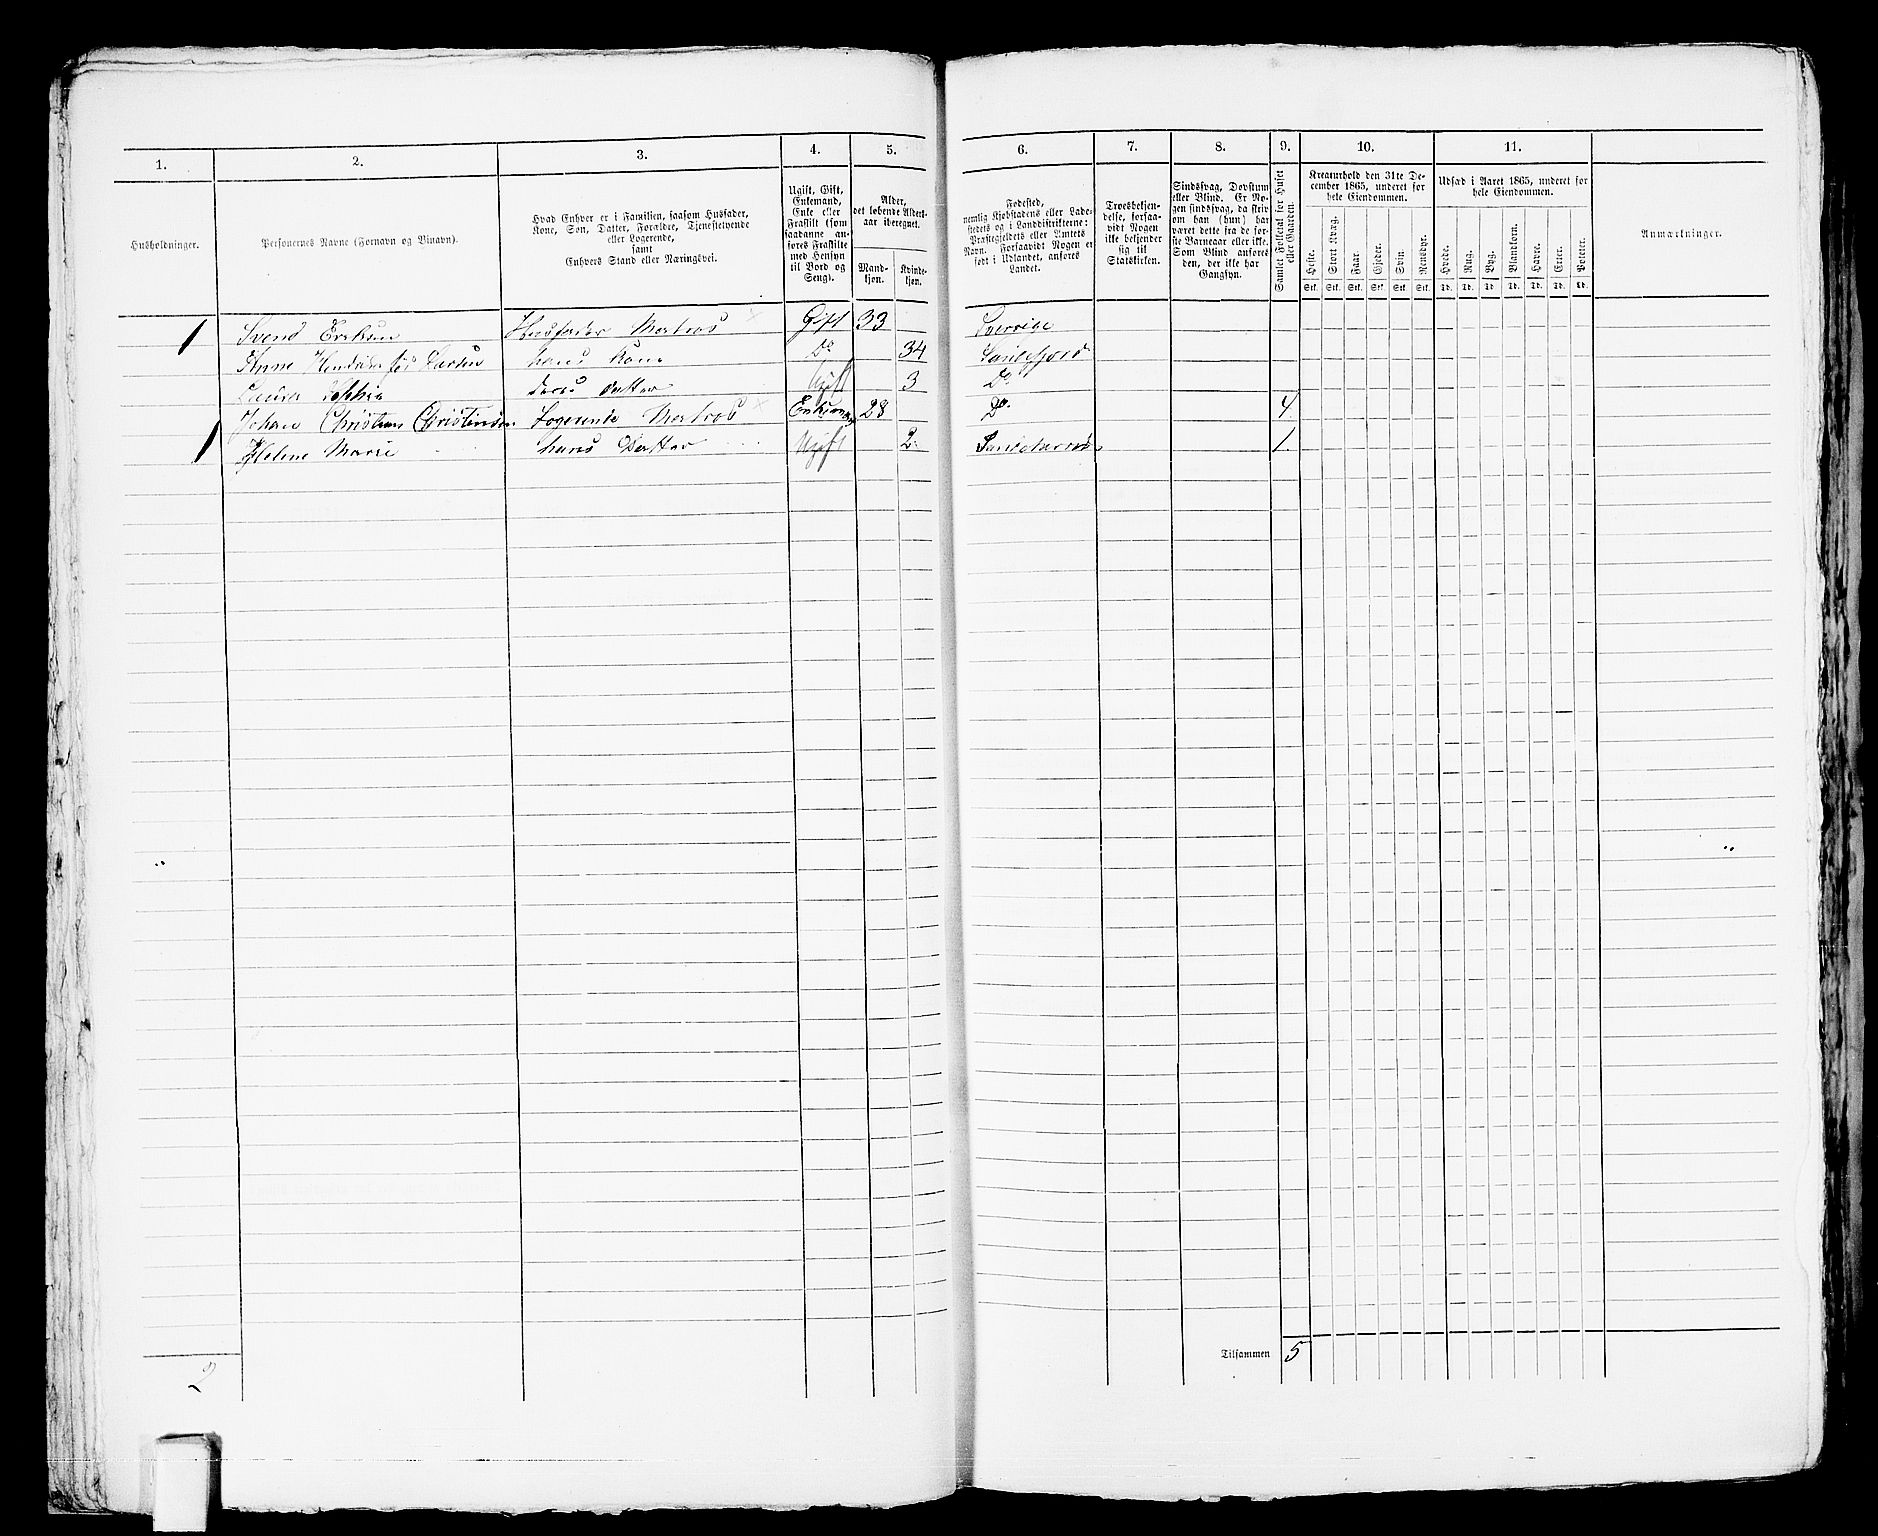 1. 2. 3. 4. 5. 6. 7. 8. 9. 10. 11.
Husholdninger.
Personernes Navne (Fornavn og Tilnavn).
Hvad Enhver er i Familien, saasom Husfader,
Kone, Søn, Datter, Forældre, Tjenestetyende
eller Logerende,
samt
Enhvers Stand eller Næringsvei.
Ugift, Gift,
Enkemand,
Enke eller
Fraskilt (som
saadanne an-
føres Fraskilte
med Hensyn
til Bord og
Seng).
Alder,
det løbende Alders-
aar iberegnet.
Mand-
kjøn.
Kvinde-
kjøn.
Fødested,
nemlig Kjøbstadens eller Lade-
stedets og i Landdistrikterne:
Præstegjeldets eller Amtets
Navn. Forsaavidt Nogen er
født i Udlandet, anføres
Landet.
Troesbekjen-
delse, forsaa-
vidt Nogen
ikke bekjender
sig til
Statskirken.
Sindssvag, Døvstum
eller Blind. Er No-
gen sindssvag, da skri-
ves om han (hun) har
været dette fra de før-
ste Barneaar eller ikke.
Som Blind anføres
den, der ikke har
Gangsyn.
Samlet Folketal for Huset
eller Gaarden.
Kreaturhold den 31te De-
cember 1865, underet for
hele Eiendommen.
Heste. Stort Kvæg. Faar. Gjeder. Svin Rensdyr.
Stk. Stk. Stk. Stk. Stk. Stk.
Udsæd i Aaret 1865, underet for
hele Eiendommen.
Hvede. Rug. Byg. Blandkorn. Havre. Erter. Poteter.
Td. Td. Td. Td. Td. Td. Td.
Anmærkninger.
1 Svend Eriksen Husfader Matros Gift 33 Sverige
Anne født Larsen hans Kone Do 34 Sandefjord
Laura Sophie deres Datter Ugift 3 Do
1 Johan Christian Christensen Logerende Matros Enkemand 28 Do. 4.
Helene Marie hans Datter Ugift 2. 1.
Tilsammen 5
2